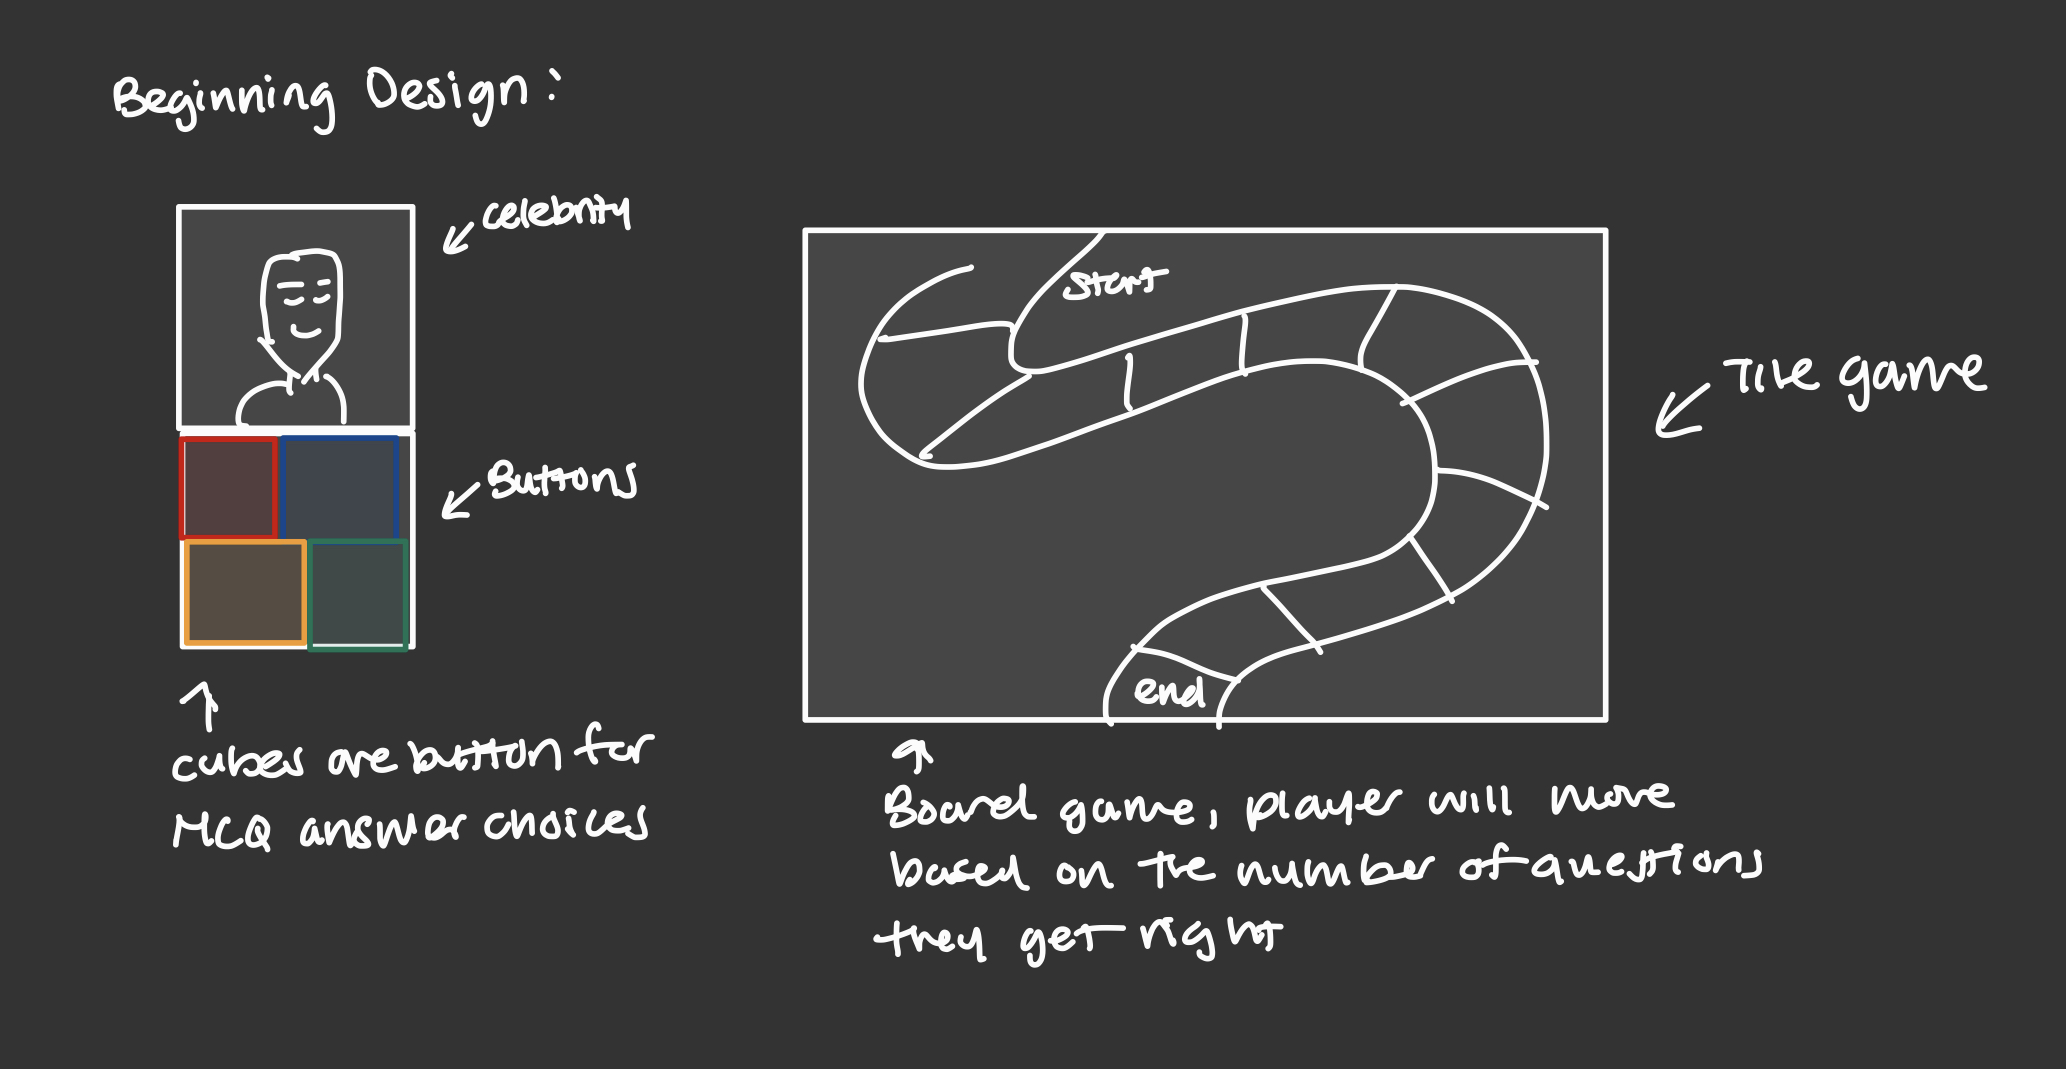 Beginning Design:
celebrity
Buttons
cubes are button for
MCQ answer choices
start
end
Tile game
Board game, player will move
based on the number of questions
they get right